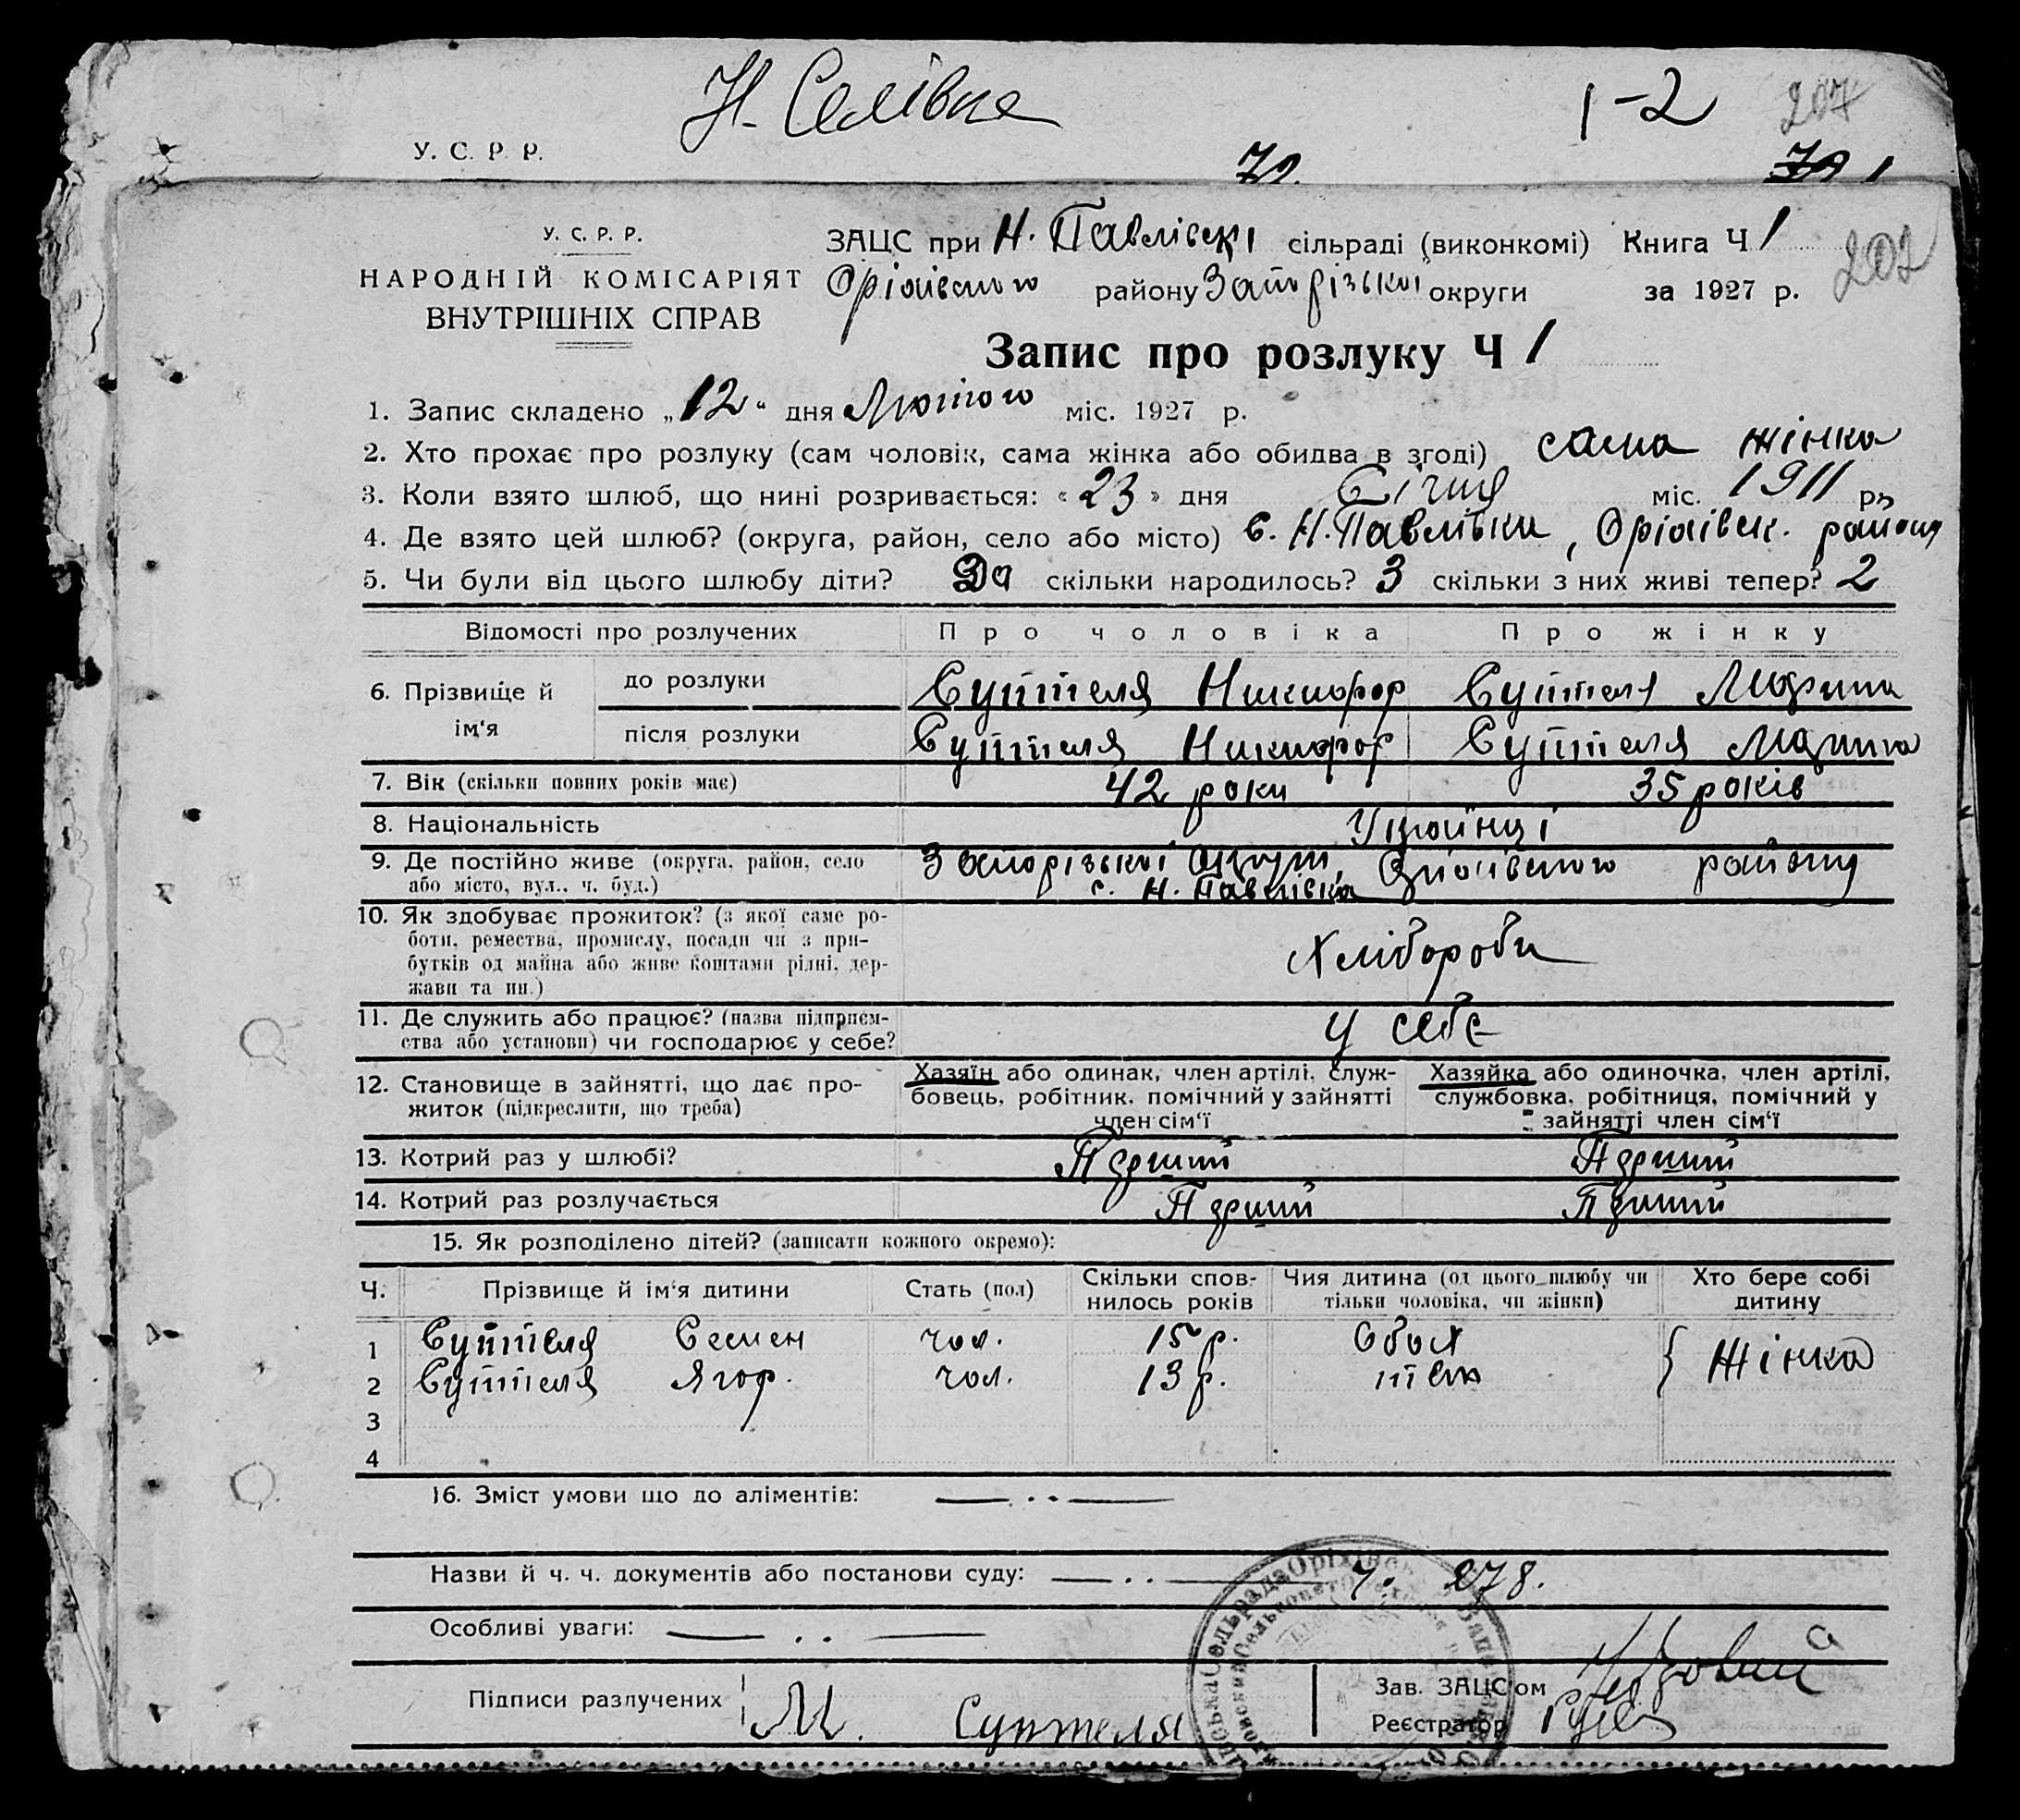 Н. Селівка 1-2 207
У. С. Р Р. 72.
У. С. Р. Р.
НАРОДНІЙ КОМІСАРІЯТ
ВНУТРІШНІХ СПРАВ
ЗАЦС при Н. Павлівскі сільраді (виконкомі) Книга Ч 1
Оріхівського району Запорізької округи за 1927 р.
202
Запис про розлуку Ч 1
1. Запис складено „12“ дня Лютого міс. 1927 р.
2. Хто прохає про розлуку (сам чоловік, сама жінка або обидва в згоді) сама жінка
3. Коли взято шлюб, що нині розривається: «23» дня Січня міс. 1911 р.
4. Де взято цей шлюб? (округа, район, село або місто) с. Н. Павлівки, Оріхівськ. району
5. Чи були від цього шлюбу діти? Да скільки народилось? 3 скільки з них живі тепер? 2
Відомості про розлучених Про чоловіка Про жінку
6. Прізвище й ім‘я
до розлуки Суптеля Никифор Суптеля Марина
після розлуки Суптеля Никифор Суптеля Марина
7. Вік (скільки повних років має) 42 роки 35 років
8. Національність Українці
9. Де постійно живе (округа, район, село Запорізької округи, Оріхівського району
або місто, вул., ч. буд.) с. Н. Павлівка
10. Як здобуває прожиток? (з якої саме ро-
боти, ремества, промислу, посади чи з при-
бутків од майна або живе коштами рідні, дер-
жави та ин.) Хлібороби
11. Де служить або працює? (назва підприєм-
ства або установи) чи господарює у себе? у себе
12. Становище в зайнятті, що дає про-
житок (підкреслити, що треба)
Хазяїн або одинак, член артілі, служ-
бовець, робітник, помічний у зайнятті
член сім‘ї
Хазяйка або одиночка, член артілі,
службовка, робітниця, помічний у
зайнятті член сім‘ї
13. Котрий раз у шлюбі? Перший Перший
14. Котрий раз розлучається Перший Перший
15. Як розподілено дітей? (записати кожного окремо):
Ч. Прізвище й ім‘я дитини Стать (пол) Скільки спов-
нилось років Чия дитина (од цього шлюбу чи
тільки чоловіка, чи жінки) Хто бере собі
дитину
1 Суптеля Семен чол. 15 р. Обох Жінка
2 Суптеля Ягор. чол. 13 р. теж
3
4
16. Зміст умови що до аліментів:
Назви й ч. ч. документів або постанови суду: Ч. 278.
Особливі уваги:
Підписи разлучених М. Суптеля
Зав. ЗАЦС'ом
Реєстратор